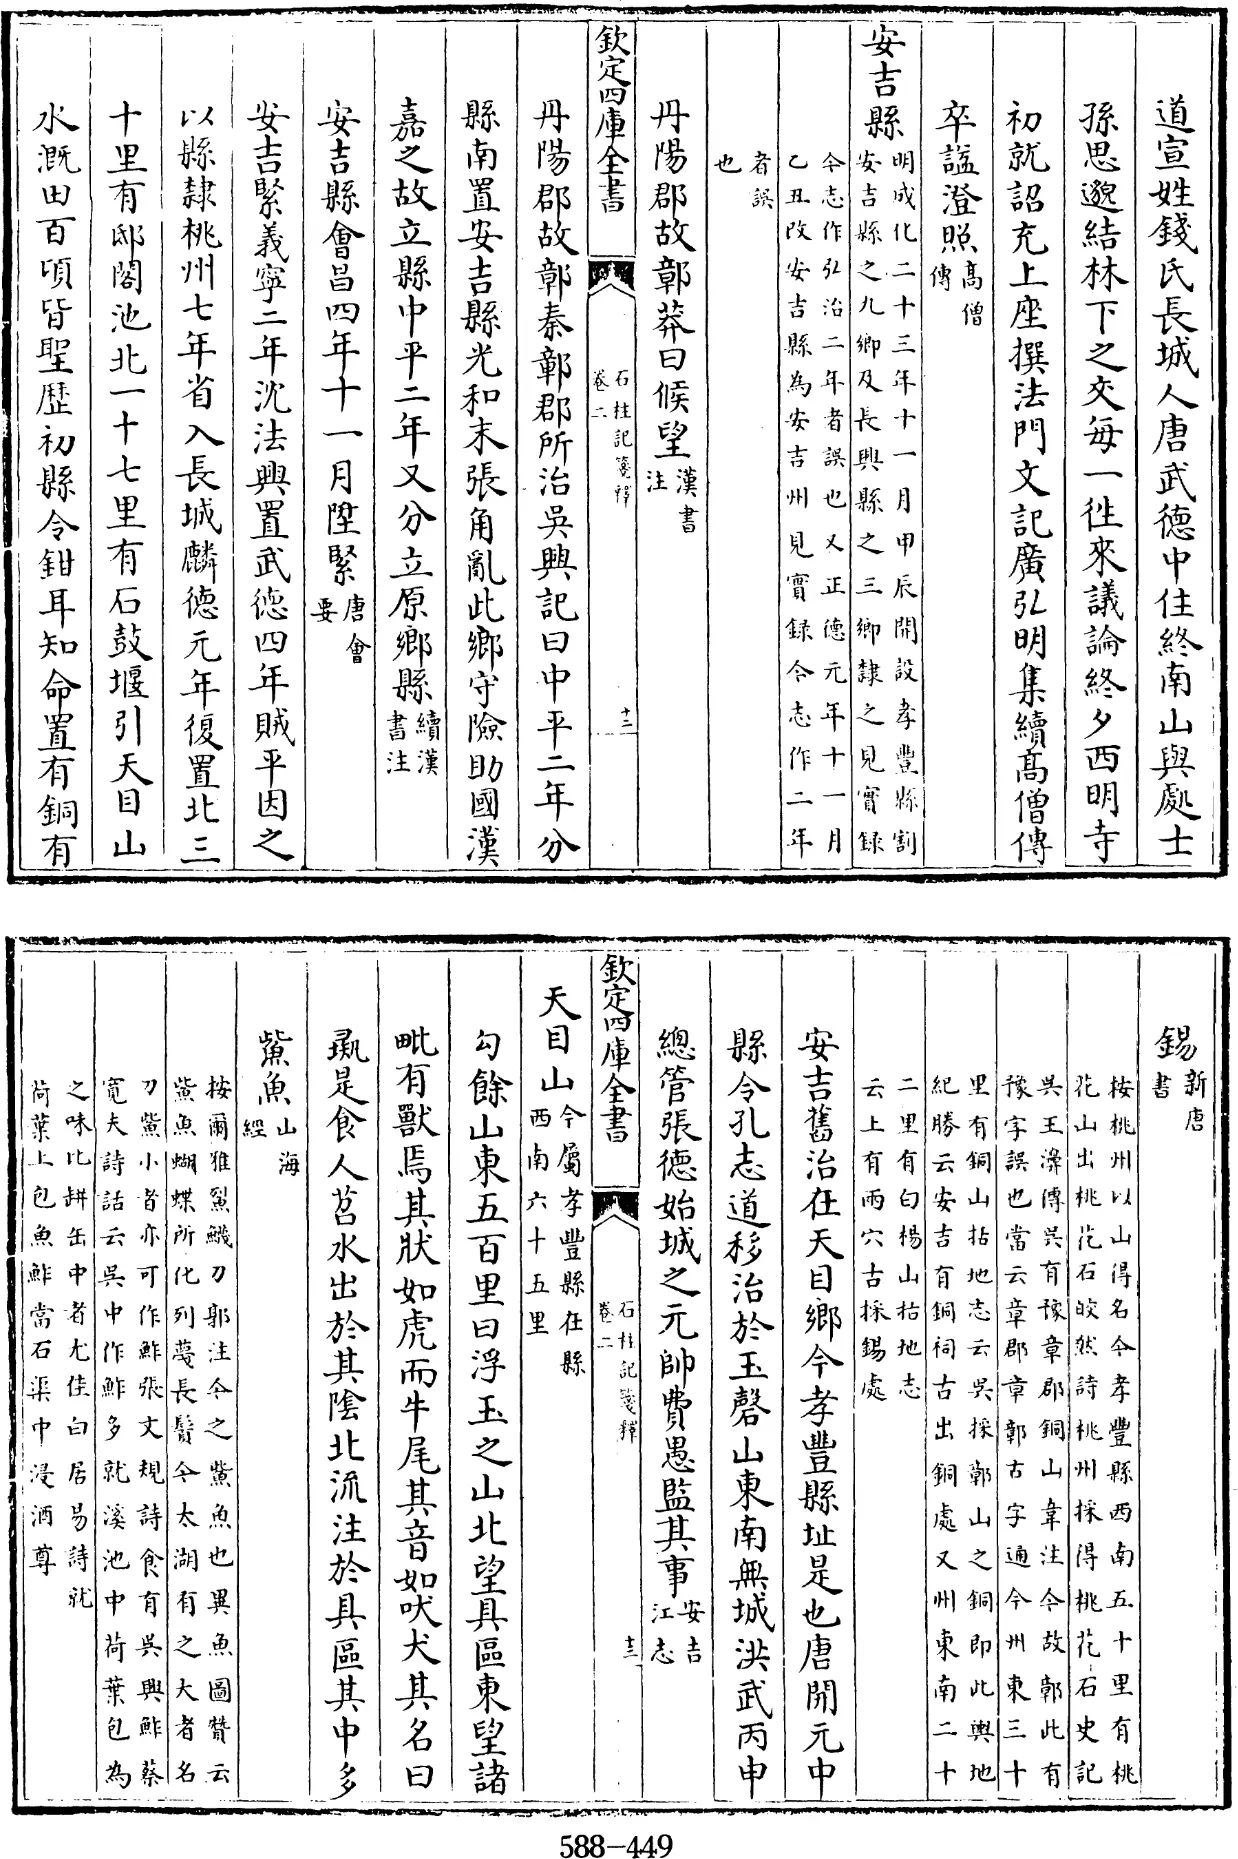 道宣姓錢氏長城人唐武德中住終南山與處士
孫思邈結林下之交每一往來議論終夕西明寺
初就詔充上座撰法門文記廣弘明集續髙僧傳
卒諡澄照髙僧
傳
安吉縣明成化二十三年十一月甲辰開設孝豐縣割
安吉縣之九鄉及長興縣之三鄉隸之見實録
今志作弘治二年者誤也又正德元年十一月
乙丑改安吉縣為安吉州見實録今志作二年
者誤
也
丹陽郡故鄣莽曰候望漢書
注
欽定四庫全書
石柱記箋釋
卷二
十二
丹陽郡故鄣秦鄣郡所治吳興記曰中平二年分
縣南置安吉縣光和末張角亂此鄉守險助國漢
嘉之故立縣中平二年又分立原鄉縣續漢
書注
安吉縣會昌四年十一月陞緊唐會
要
安吉緊義寧二年沈法興置武徳四年賊平因之
以縣隸桃州七年省入長城麟德元年復置北三
十里有邸閣池北一十七里有石鼓堰引天目山
水溉田百頃皆聖歴初縣令鉗耳知命置有銅有
錫新唐
書
按桃州以山得名今孝豐縣西南五十里有桃
花山出桃花石皎然詩桃州採得桃花石史記
吳王濞傳吳有豫章郡銅山韋注今故鄣此有
豫字誤也當云章郡章鄣古字通今州東三十
里有銅山括地志云吳採鄣山之銅即此輿地
紀勝云安吉有銅祠古出銅處又州東南二十
二里有白楊山括地志
云上有兩穴古採錫處
安吉舊治在天目鄉今孝豐縣址是也唐開元中
縣令孔志道移治於玉磬山東南無城洪武丙申
總管張德始城之元帥費愚監其事安吉
江志
欽定四庫全書
石柱記箋釋
卷二
十三
天目山今屬孝豐縣在縣
西南六十五里
勾餘山東五百里曰浮玉之山北望具區東望諸
毗有獸焉其狀如虎而牛尾其音如吠犬其名曰
彘是食人苕水出於其陰北流注於具區其中多
鮆魚山海
經
按爾雅鮤鱴刀郭注今之鮆魚也異魚圖贊云
鮆魚蝴蝶所化列蔓長鬢今太湖有之大者名
刀鮆小者亦可作鮓張文規詩食有吳興鮓蔡
寛夫詩話云吳中作鮓多就溪池中荷葉包為
之味比缾缶中者尤佳白居易詩就
荷葉上包魚鮓當石渠中浸酒尊
588-449